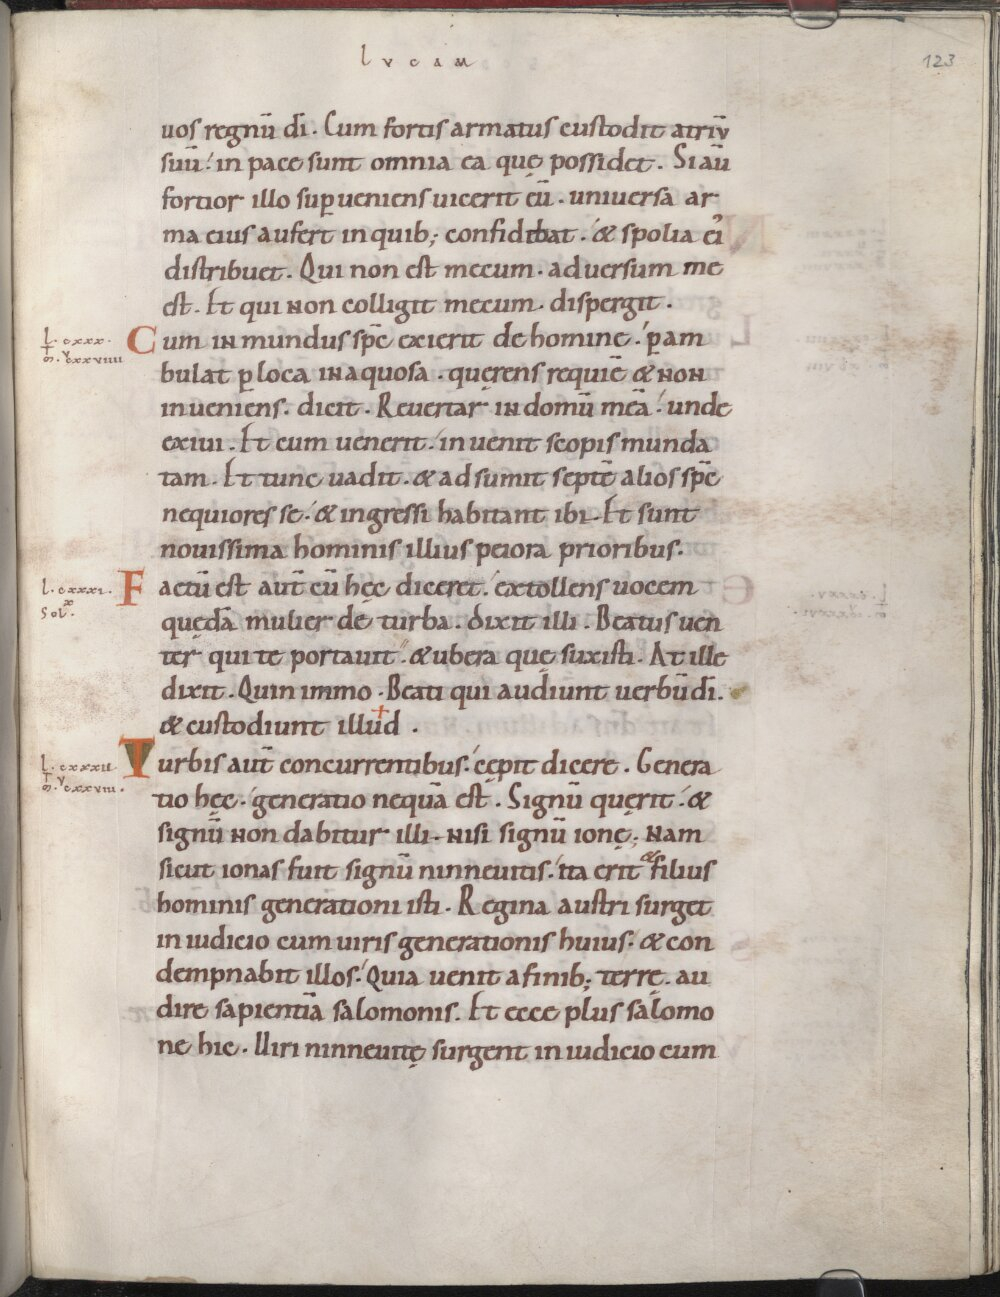 lvcam
123
uos regnū dī. Cum fortis armatus custodit atriv̄
suū: in pace sunt omnia ea quę possidet. Si aū
fortior illo suꝑueniens uicerit eū. uniuersa ar
ma eius aufert in quib; confidebat. & spolia ei᾽
distribuet. Qui non est mecum. aduersum me
est. Et qui non colligit mecum. dispergit.
L. cxxx.
m̄. v cxxviiii
Cum inmundus spc̄ exierit de homine. ꝑam
bulat ꝑ loca inaquosa. quęrens requiē & non
inueniens. dicit. Reuertar in domū meā: unde
exiui. Et cum uenerit. inuenit scopis munda
tam. Et tunc uadit. & adsumit septē alios spc̄
nequiores se. & ingressi habitant ibi. Et sunt
nouissima hominis illius peiora prioribus.
L. cxxxi.
Sol x.
Factū est aut̄ cū hęc diceret. extollens uocem
quędā mulier de turba. dixit illi. Beatus uen
ter qui te portauit. & ubera quę suxisti. At ille
dixit. Quin immo. Beati qui audiunt uerbū dī.
& custodiunt illud.
L. cxxxii
m̄. v cxxviii.
Turbis aut̄ concurrentibus. cępit dicere. Genera
tio hęc. generatio nequā est. Signū quęrit. &
signū non dabitur illi. nisi signū ionę; Nam
sicut ionas fuit signū ninneuitis. ita erit & filius
hominis generationi isti. Regina austri surget
in iudicio cum uiris generationis huius. & con
dempnabit illos. Quia uenit a finib; terrę. au
dire sapientiā salomonis. Et ecce plus salomo
ne hic. Uiri ninneuitę surgent in iudicio cum